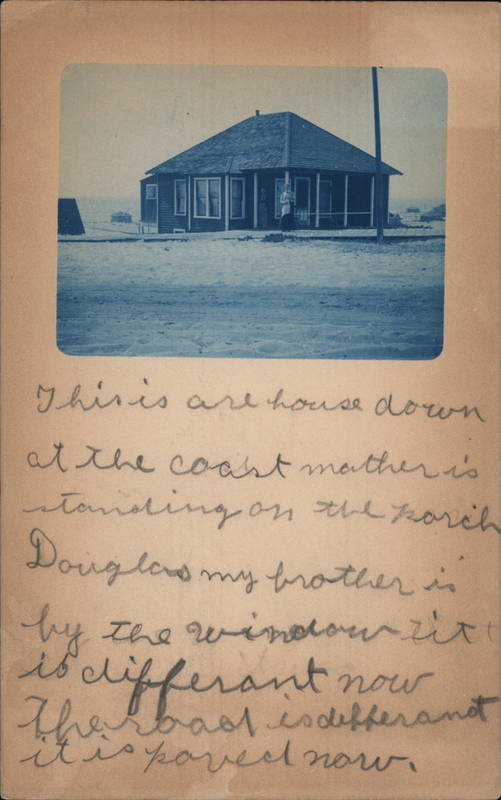 This is are house down
at the coast mother is
standing on the porch
Douglas my brother is
by the window
is differant now
The road is differant
it is paved now.